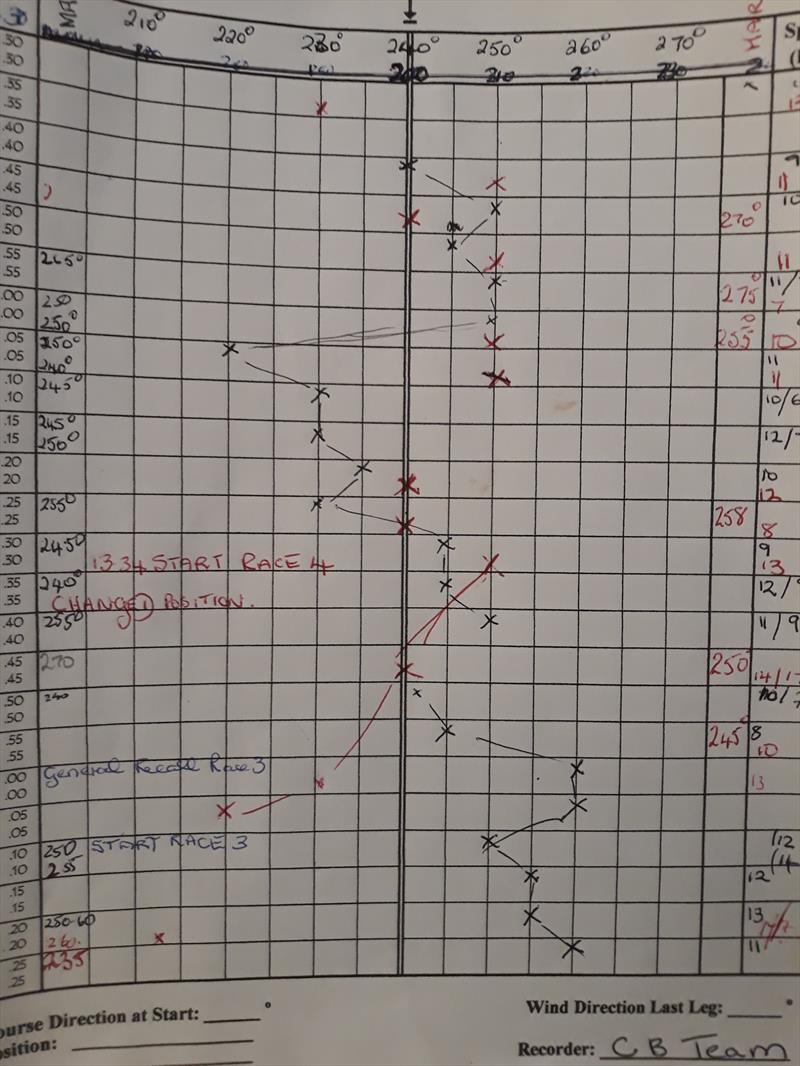 MAR
210° 220° 230° 240° 250° 260° 270°
.30
.30
.35
.35
.40
.40 9
.45 11
.45 10
.50 270°
.50
.55 265° 11
.55 11/
.00 250 275° 7
.00 250°
.05 250° 255° 10
.05 240° 11
.10 245° 11
.10 10/6
.15 245°
.15 250° 12/
.20 10
.20 12
.25 255°
.25 258 8
.30 245° 9
.30 1334 START RACE 4 13
.35 240° 12/9
.35 CHANGE 1 POSITION.
.40 255° 11/9
.40
.45 270 250
.45 14/17
.50 240 10/7
.50
.55 245° 8
.55 10
.00 General Recall Race 3
.00 13
.05
.05
.10 250 START RACE 3 12
.10 255 12
.15
.15
.20 250-60 13
.20 260. 11
.25 235
.25
ourse Direction at Start: ______ °
osition: ______
Wind Direction Last Leg: ______ °
Recorder: CB Team